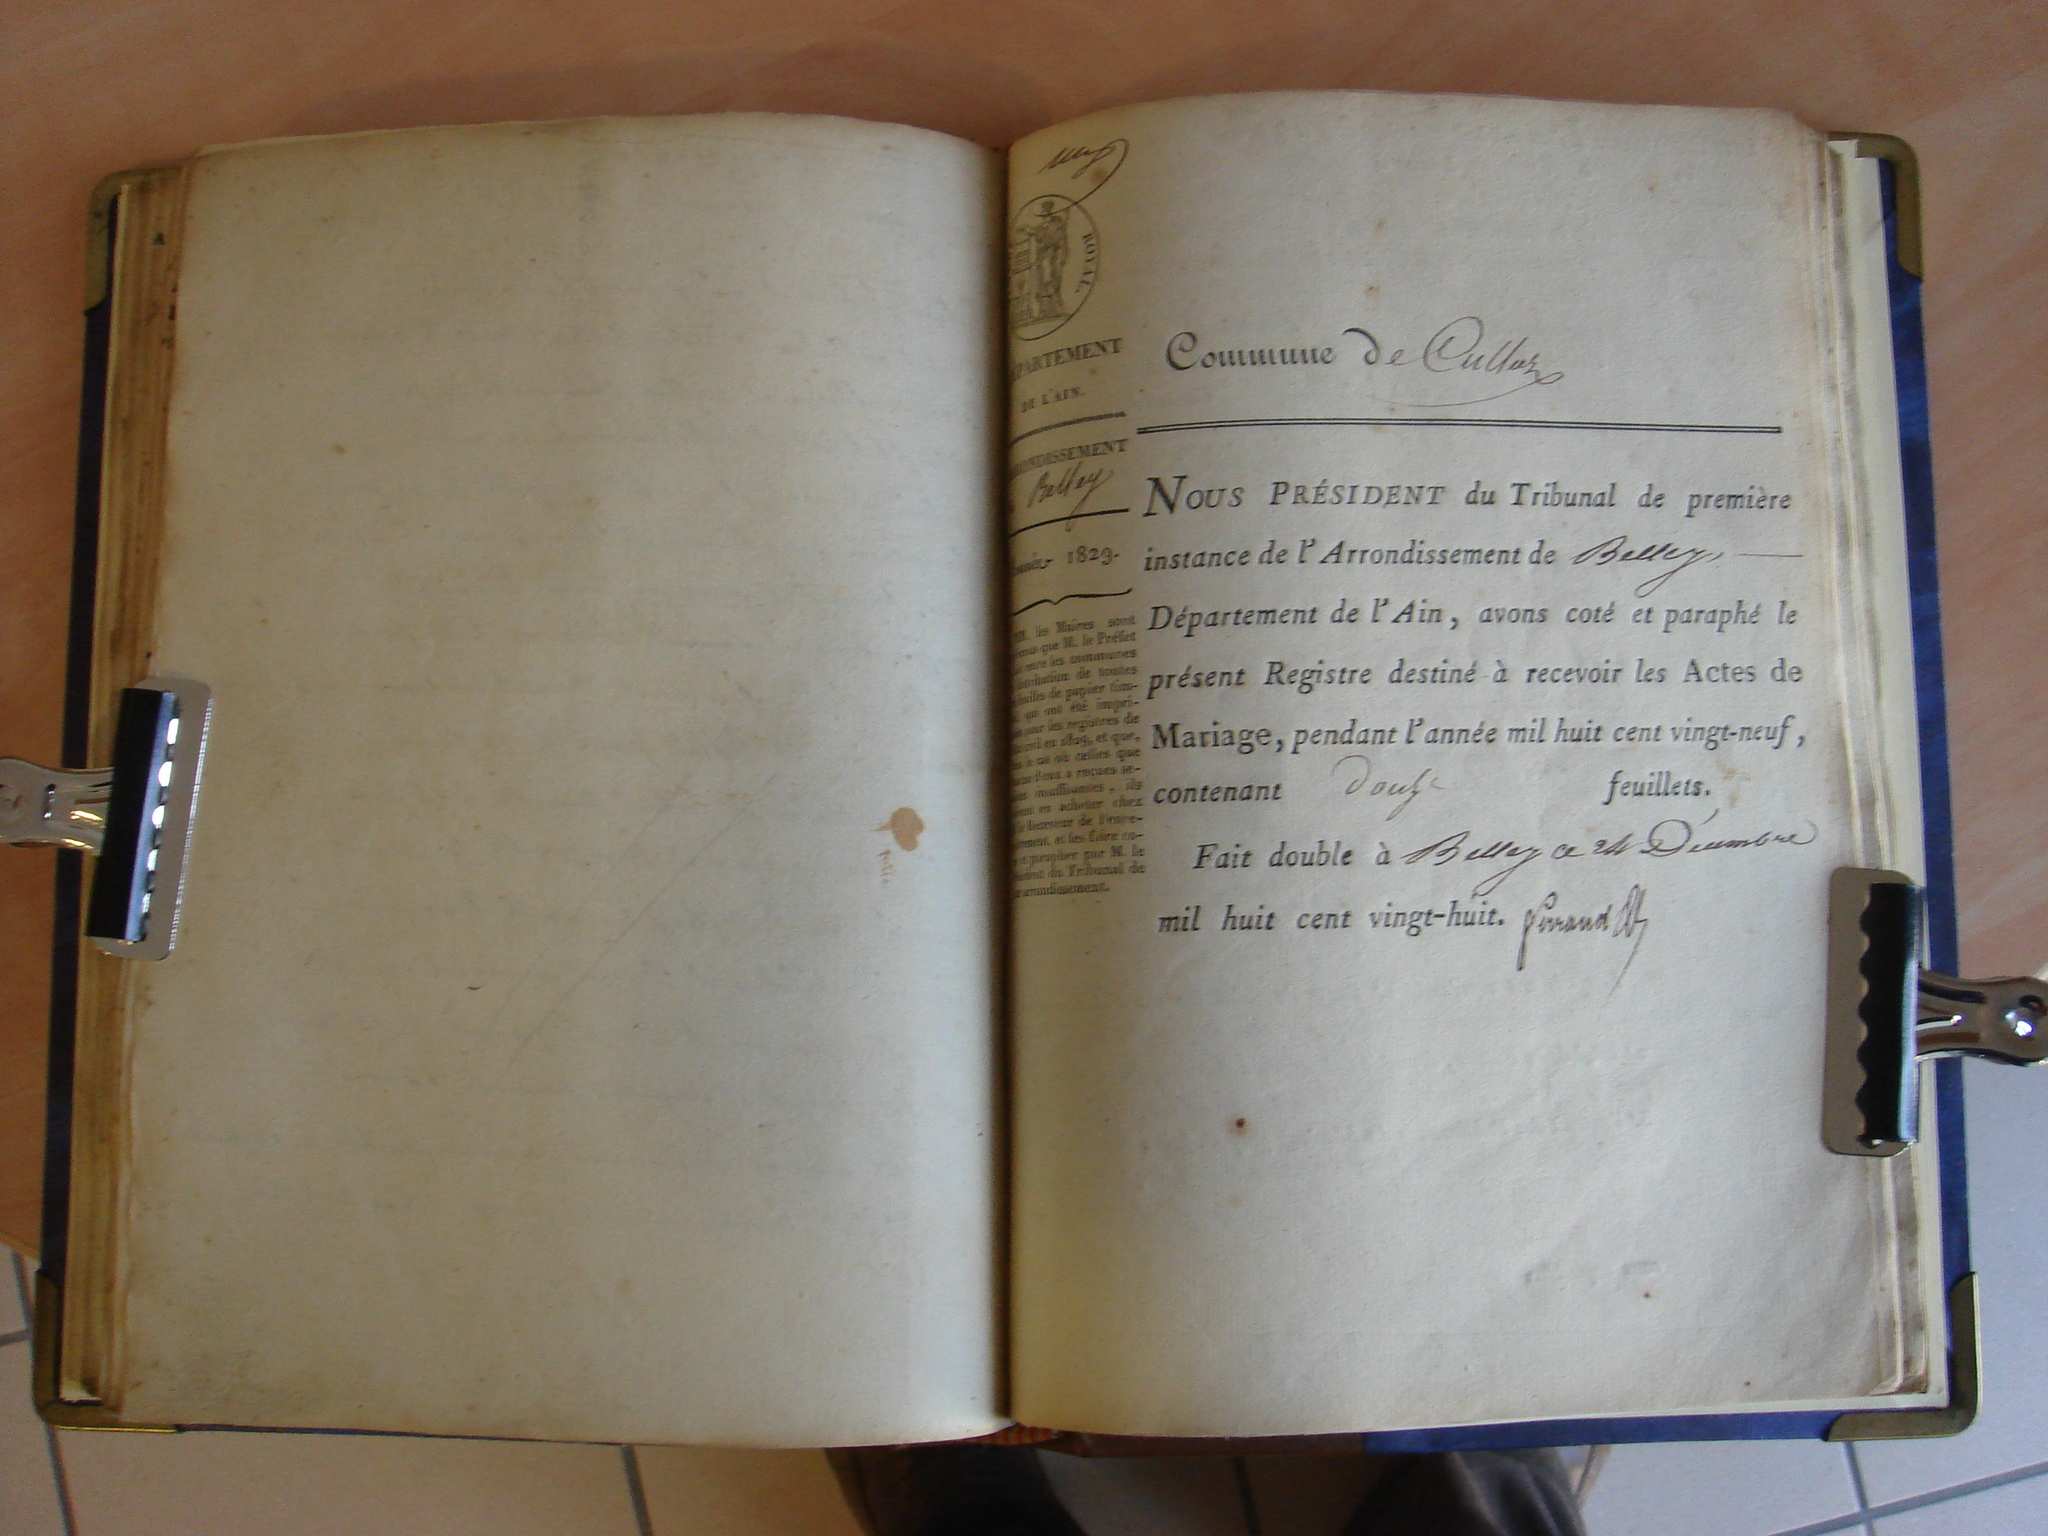 ROYAL.
PARTEMENT
DE L'AIN.
ONDISSEMENT
Belley
1829.
les Maires sont
que M. le Préfet
les communes
de toutes
de papier tim-
qui ont été impri-
les registres de
en 1829, et que,
où celles que
reçues se-
insuffisantes, ils
en acheter chez
de l'enre-
et les faire co-
et parapher par M. le
du Tribunal de
arrondissement.
Commune de Culloz
NOUS PRÉSIDENT du Tribunal de première
instance de l'Arrondissement de Belley,
Département de l'Ain, avons coté et paraphé le
présent Registre destiné à recevoir les Actes de
Mariage, pendant l'année mil huit cent vingt-neuf,
contenant douze feuillets.
Fait double à Belley ce 24 Décembre
mil huit cent vingt-huit.